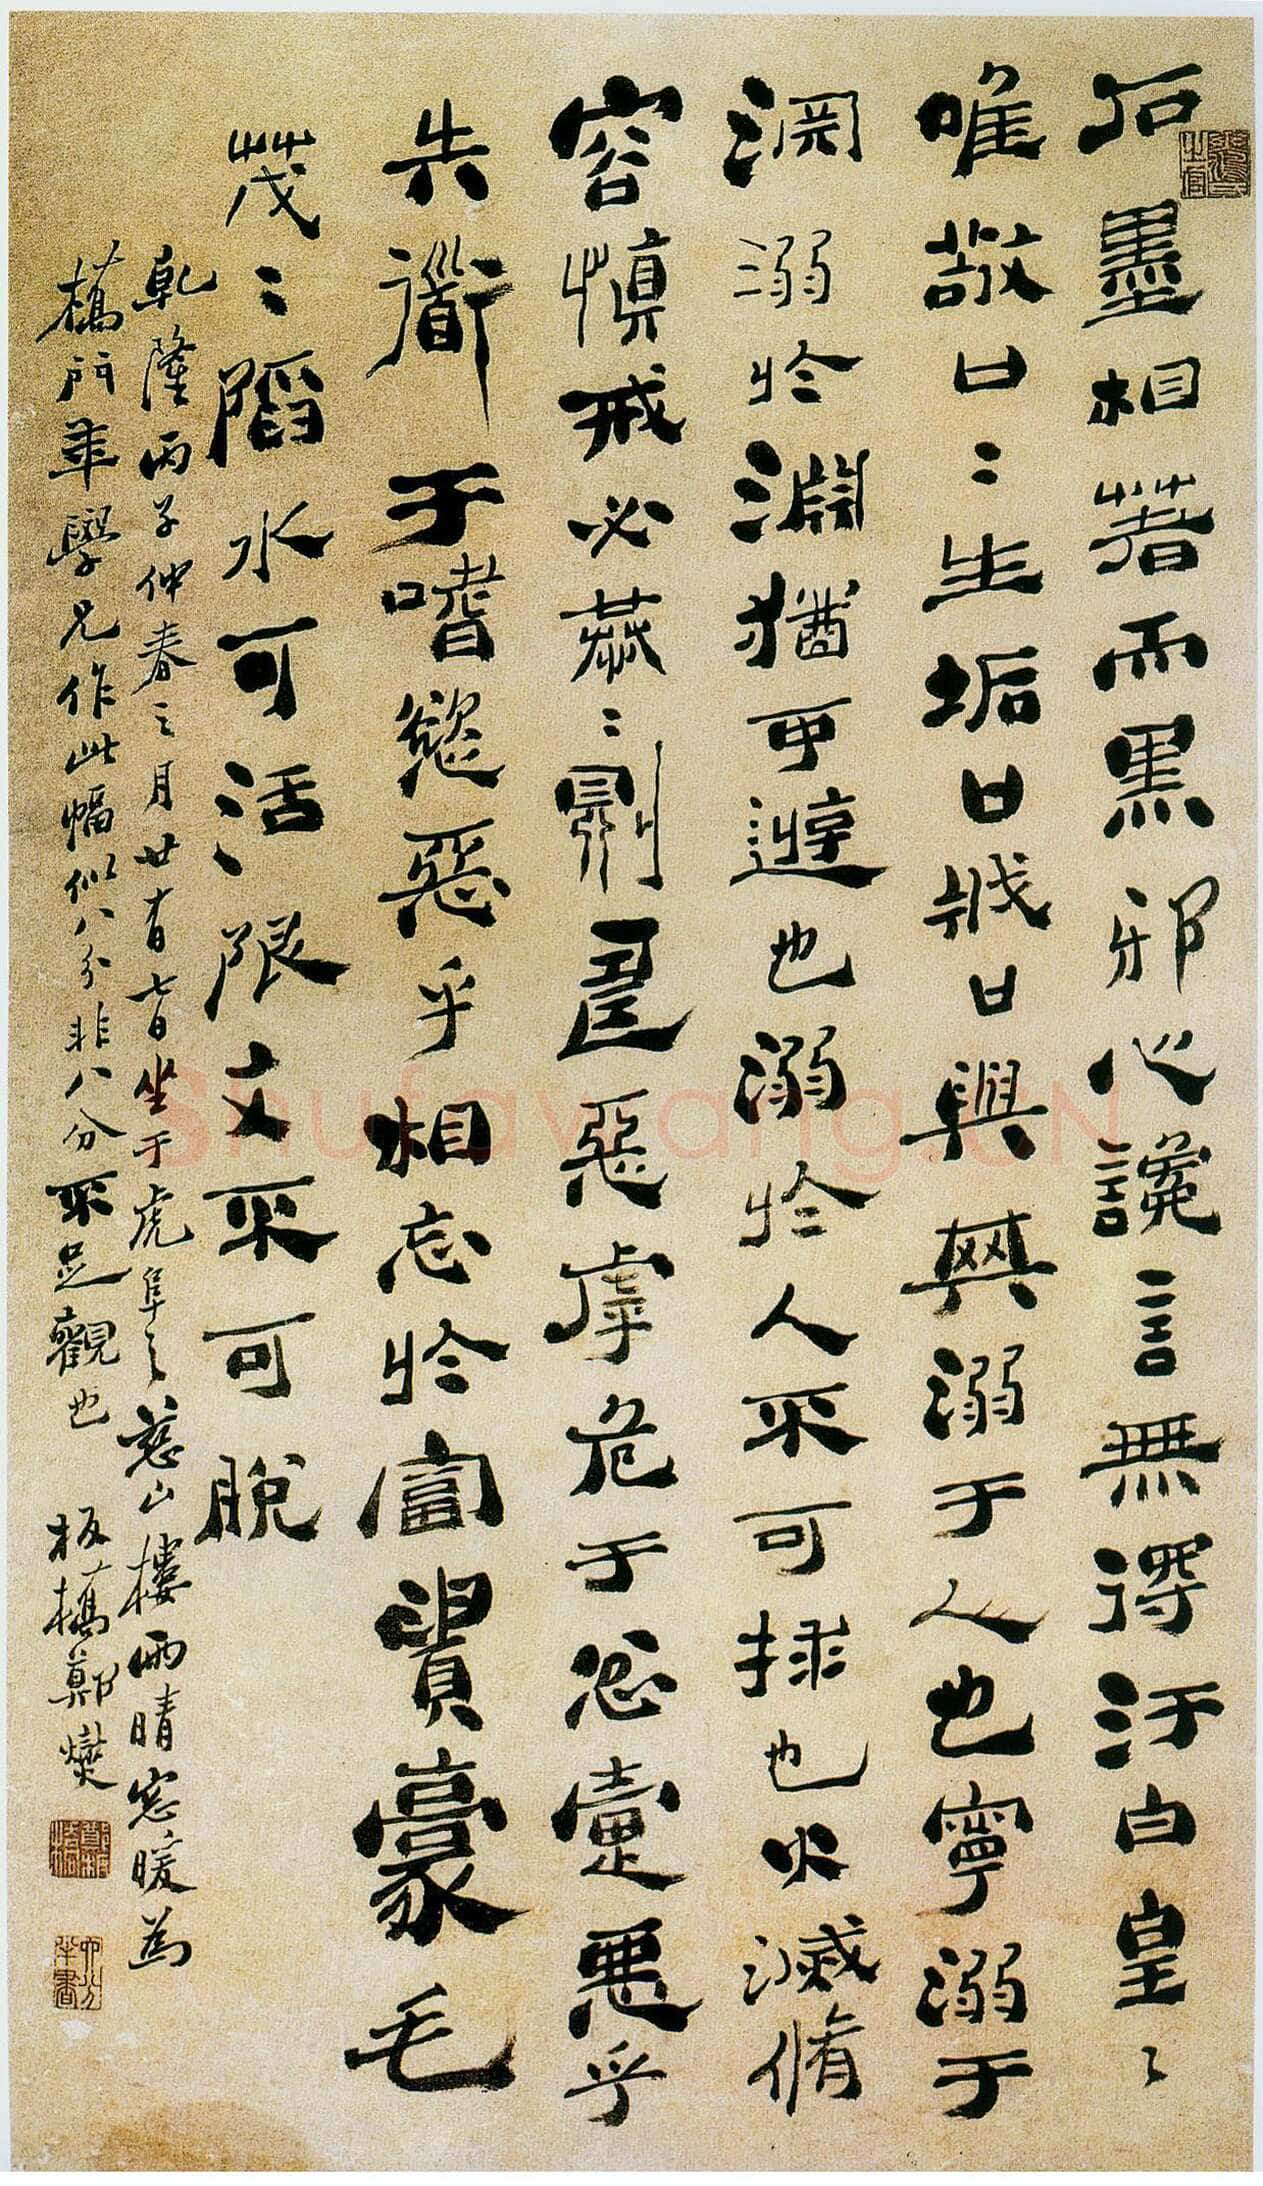 石墨相著而黑邪心讒言無得汙白皇〻
唯敬口〻生垢口戕口與其溺于人也寧溺于
淵溺於淵猶可遊也溺於人不可捄也火滅脩
容慎戒必恭〻則壽惡虖危于忿疐惡乎
失道于嗜慾惡乎相忘於富貴豪毛
茂〻陷水可活陷文不可脫
乾隆丙子仲春之月廿有七日坐于虎阜之慈山樓雨晴窓暖為
橋門年學兄作此幅似八分非八分不足觀也 板橋鄭燮
Shufawang.CN